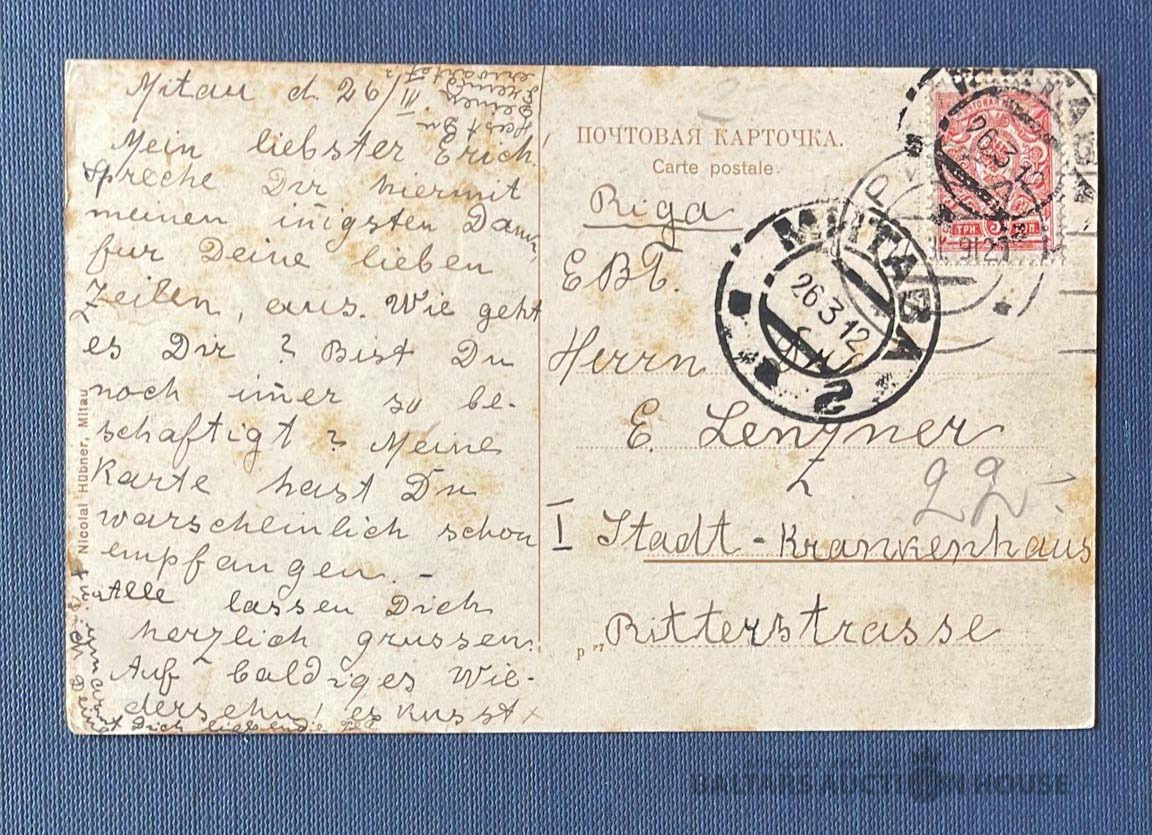 Mitau d. 26/III.
Mein liebster Erich
Spreche Dir hiermit
meinen iñigsten Dank
fur Deine lieben
Zeilen, aus. Wie geht
es Dir ? Bist Du
noch im̄er so be-
schaftigt ? Meine
Karte hast Du
warscheinlich schon
empfangen. -
Alle lassen Dich
herzlich grussen.
Auf baldiges Wie-
dersehn! es kusst
Dich
Nicolai Hübner, Mitau
ПОЧТОВАЯ КАРТОЧКА.
Carte postale.
Riga
Herrn
E. Lenzner
Z
I Stadt-Krankenhaus
Ritterstrasse
МИТАВА
26 3 12
2
26 3 12
BALTARS AUCTION HOUSE